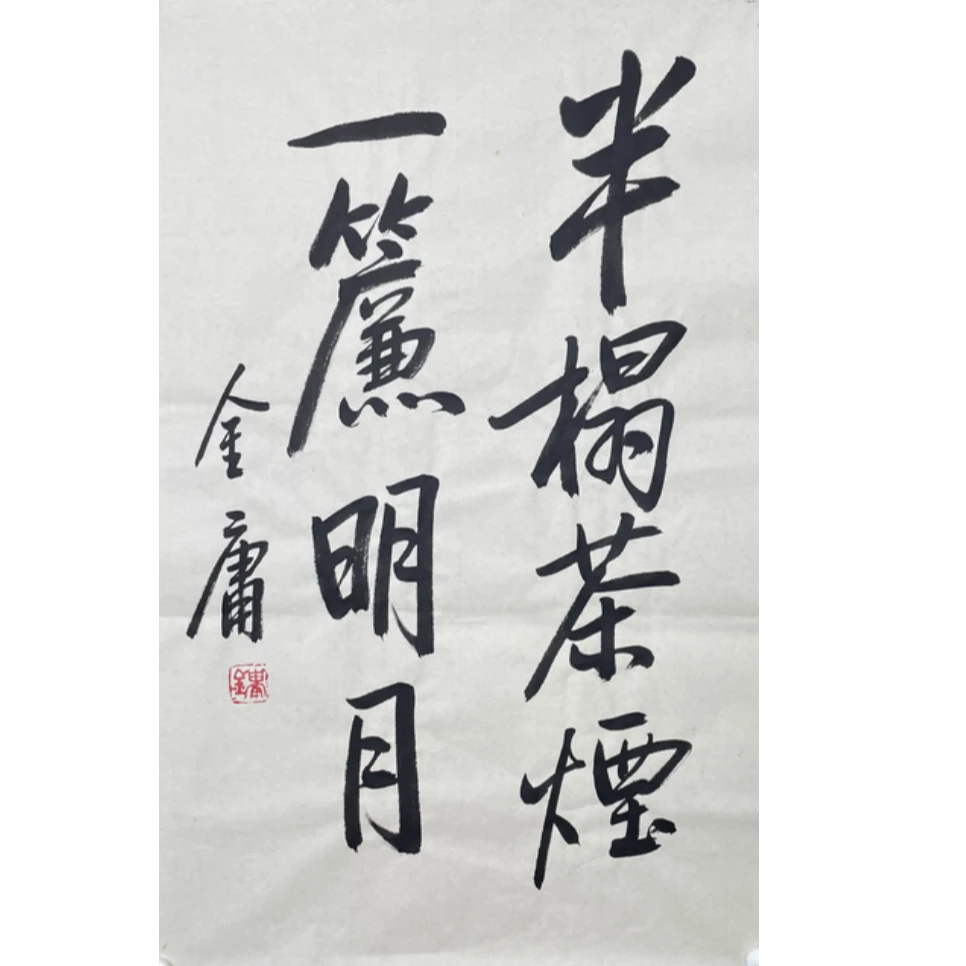 半榻茶煙
一簾明月
金庸